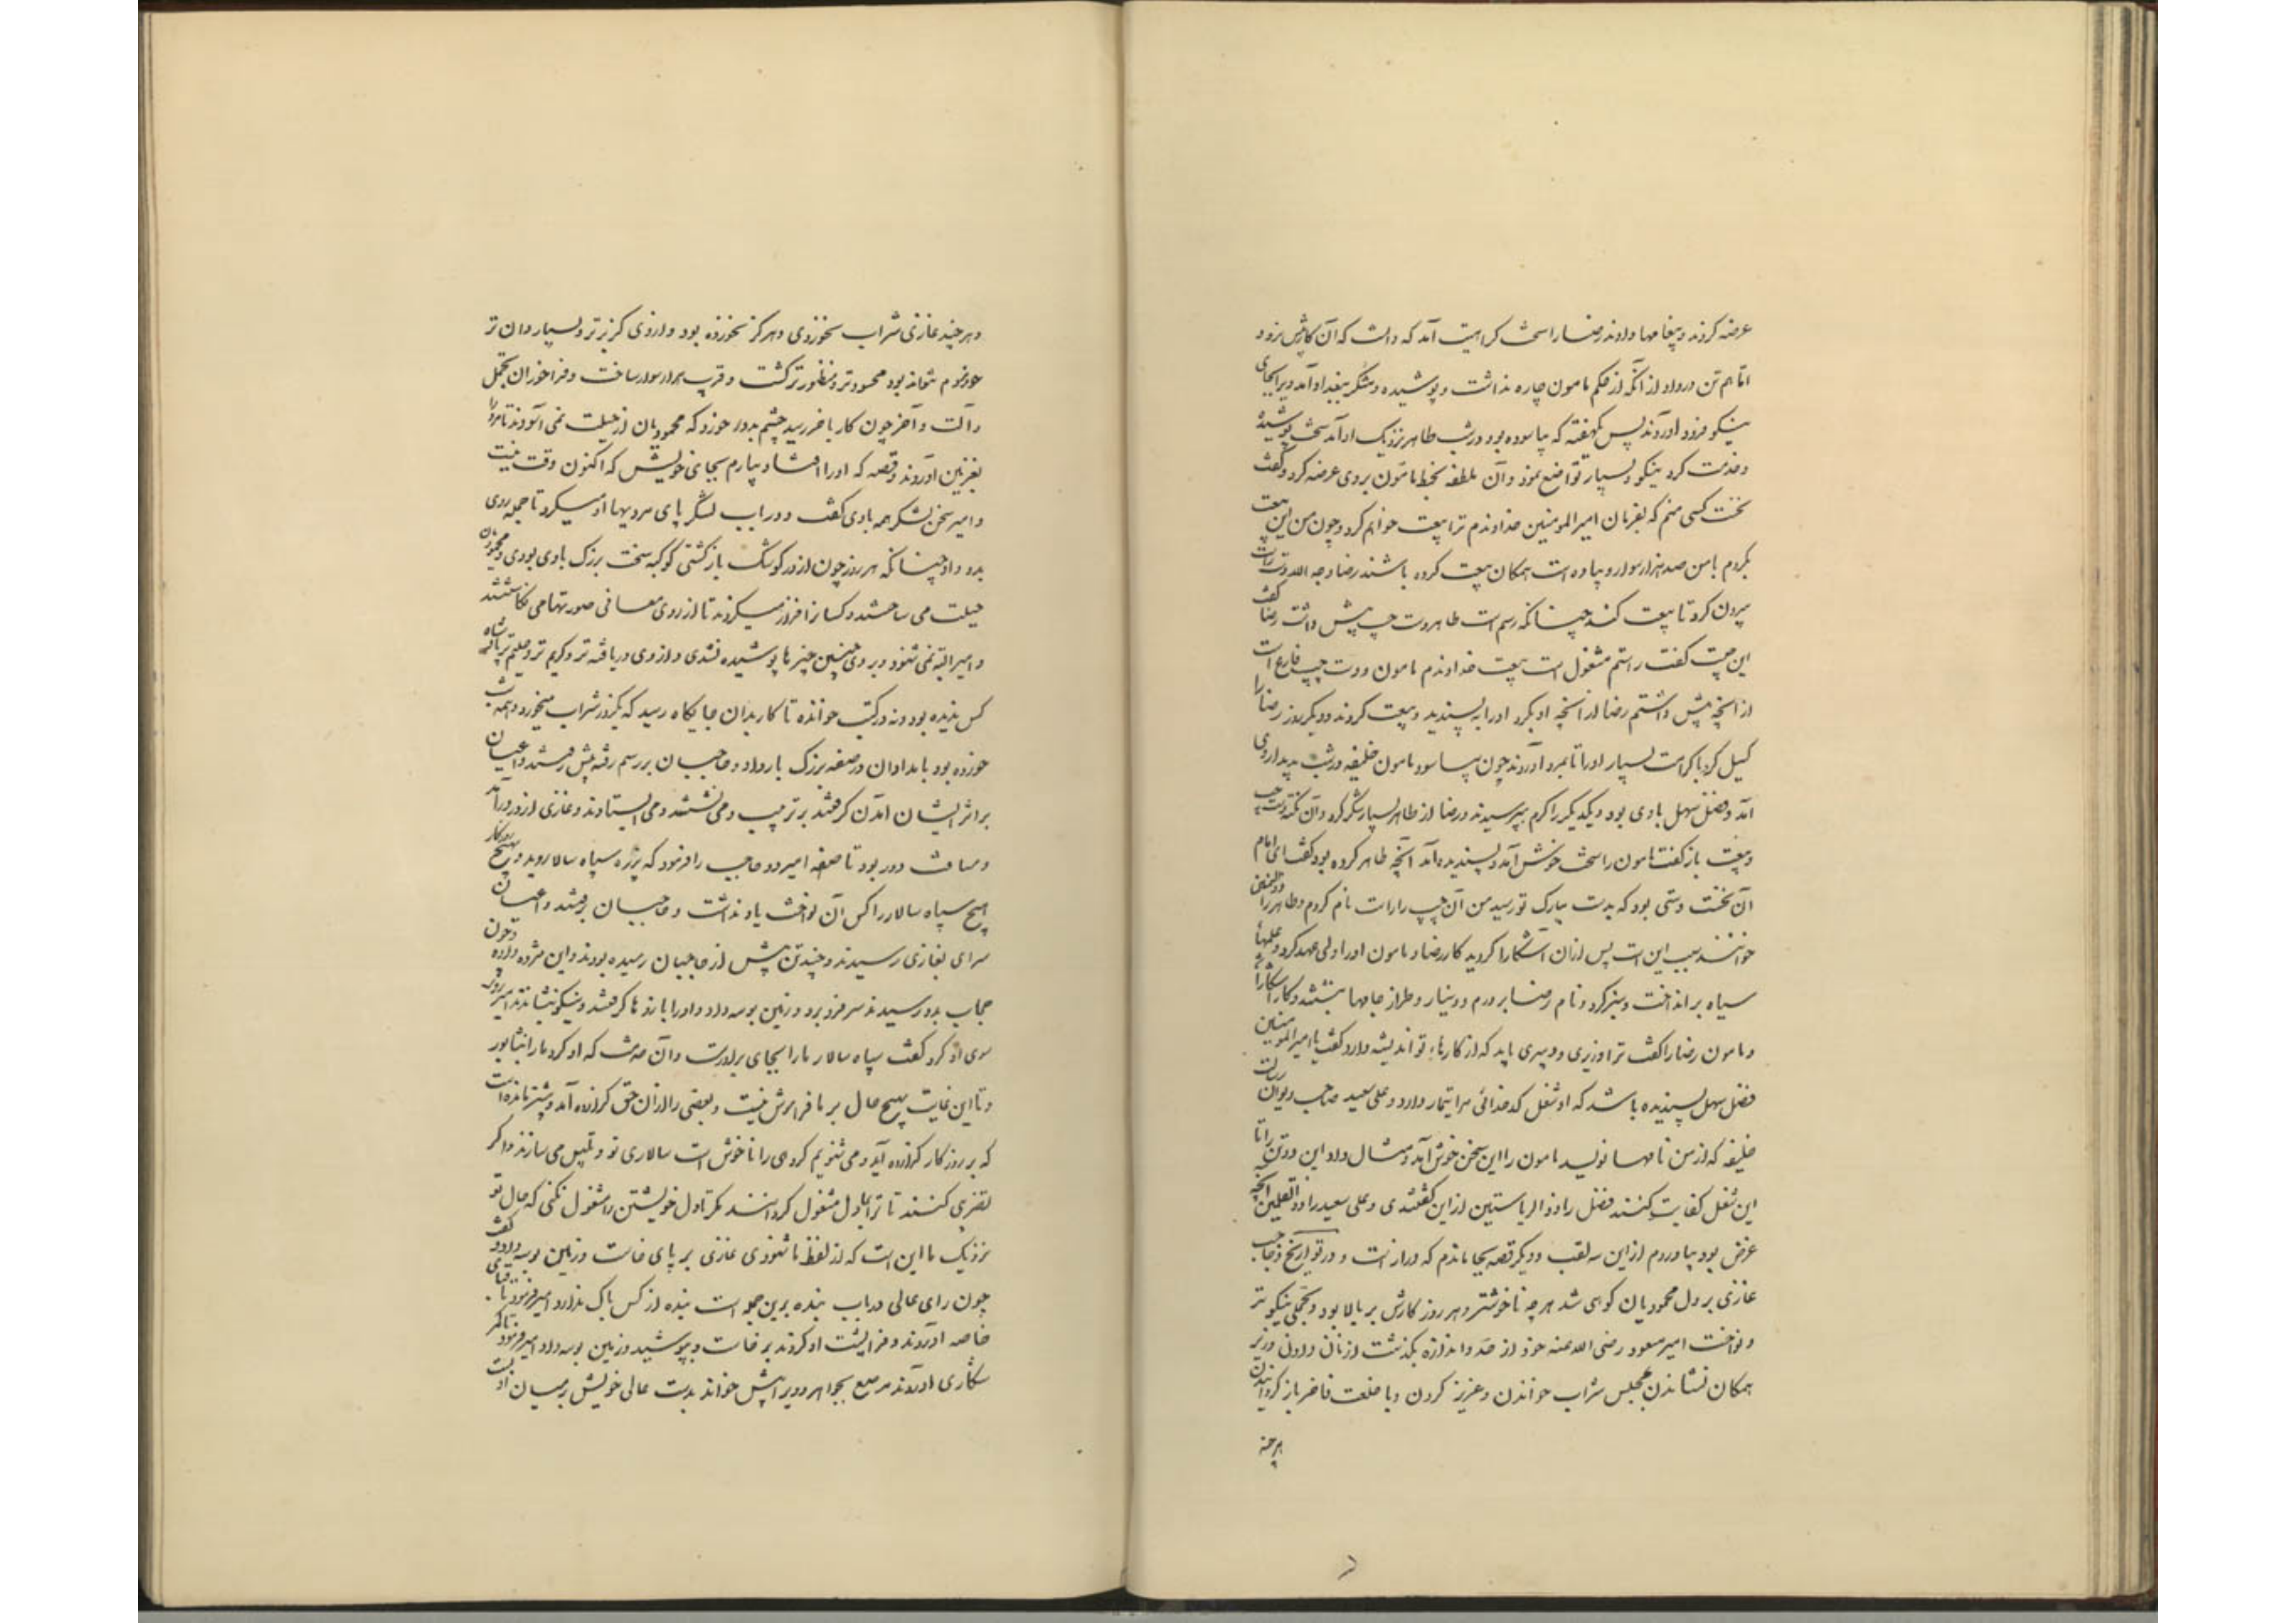 عرضه کردند و پیغامها دادند رضا را سخت کراهیت آمد که دانست که آن کار پیش نرود
اما هم تن در داد از آنکه از حکم مامون چاره نداشت و پوشیده و متنکر ببغداد آمد ویرا بجای
نیکو فرود آوردند پس یکهفته که بیاسوده بود در شب طاهر نزدیک او آمد سخت پوشیده
و خدمت کرد نیکو و بسیار تواضع نمود و آن ملطفه بخط مامون بر وی عرضه کرد و گفت
نخست کسی منم که بفرمان امیرالمومنین خداوندم ترا بیعت خواهم کرد و چون من این بیعت
بکردم با من صد هزار سوار و پیاده است همگان بیعت کرده باشند رضا رحمه الله دست راست
بیرون کرد تا بیعت کند چنانکه رسم است طاهر دست چپ پیش داشت رضا گفت
این چیست گفت راستم مشغول است ببیعت خداوندم مامون و دست چپ فارغ است
از آنچه پیش داشتم رضا از آنچه او بکرد او را بپسندید و بیعت کردند و دیگر روز رضا را
گسیل کرد با کرامت بسیار او را تا بمرو آوردند چون بیاسود مامون خلیفه در شب بدیدار وی
آمد و فضل سهل با وی بود و یکدیگر را گرم بپرسیدند و رضا از طاهر بسیار شکر کرد و آن نکته دست چپ
و بیعت باز گفت مامون را سخت خوش آمد و پسندیده آمد آنچه طاهر کرده بود گفت ای امام
آن نخست دستی بود که بدست مبارک تو رسید من آن چپ را راست نام کردم و طاهر را که ذوالیمینین
خوانند سبب این است پس از آن آشکارا گردید کار رضا و مامون او را ولی عهد کرد و علمهای
سیاه برانداخت و سبز کرد و نام رضا بر درم و دینار و طراز جامها نبشتند و کار آشکارا شد
و مامون رضا را گفت ترا وزیری و دبیری باید که از کارهای تو اندیشه دارد گفت یا امیرالمومنین
فضل سهل بسنده باشد که او شغل کدخدائی مرا تیمار دارد و علی سعید صاحب دیوان رسالت
خلیفه که از من نامها نویسد مامون را این سخن خوش آمد و مثال داد این دو تن را تا
این شغل کفایت کنند فضل را ذوالریاستین از این گفتندی و علی سعید را ذوالقلمین آنچه
غرض بود بیاوردم از این سه لقب و دیگر قصه بجا ماندم که دراز است و در تواریخ و حاجب
غازی بر دل محمودیان کوهی شد هر چه ناخوشتر و هر روز کارش بر بالا بود و تجملی نیکوتر
و نواخت امیر مسعود رضی الله عنه خود از حد و اندازه بگذشت از نان دادن و زبر
همگان نشاندن و بمجلس شراب خواندن و عزیز کردن و با خلعت فاخر باز گردانیدن
هر چند
و هر چند غازی شراب نخوردی و هرگز نخورده بود و از وی گربزتر و بسیاردان تر
خود مردم نتواند بود محسودتر و منظورتر گشت و قرب هزار سوار ساخت و فراخور آن تجمل
و آلت و آخر چون کار باخر رسید چشم بد در خورد که محمودیان از حیلت نمی آسودند تا مر او را
بغزنین آوردند و قصه که او را افتاد بیارم بجای خویش که اکنون وقت نیست
و امیر سخن لشکر همه با وی گفت و در باب لشکر پای مردیها او میکرد تا جمله روی
بدو داد چنانکه هر روز چون از در کوشک باز گشتی کوکبه سخت بزرگ با وی بودی و محمودیان
حیلت می ساختند و کسانرا فراز میکردند تا از روی معانی صورتها می نگاشتند
و امیر البته نمی شنود و بر وی چنین چیزها پوشیده نشدی و از وی دریافته تر و کریم تر و حلیم تر پادشاه
کس ندیده بود و نه در کتب خوانده تا کار بدان جایگاه رسید که یکروز شراب میخورد و همه شب
خورده بود بامدادان در صفه بزرگ بار داد و حاجبان بر رسم رفته پیش رفتند و اعیان
بر اثر ایشان آمدن گرفتند بر ترتیب و می نشستند و می ایستادند و غازی از در درآمد
و مسافت دور بود تا صفه امیر دو حاجب را فرمود که پذیره سپاه سالار روید و بهیچ روزگار
هیچ سپاه سالار را کس آن نواخت یاد نداشت و حاجبان برفتند و اعیان
سرای بغازی رسیدند و چند تن پیش از حاجبان رسیده بودند و این مژده داده و چون
حجاب بدو رسیدند سر فرو برد و زمین بوسه داد و او را بازوها گرفتند و نیکو نشاندند امیر روی
سوی او کرد و گفت سپاه سالار ما را بجای برادر است و آن خدمت که او کرد ما را بنشابور
و تا این غایت بهیچ حال بر ما فرامش نیست و بعضی را از آن حق گزارده آمد و بیشتر مانده است
که بر روزگار گزارده آید و می شنویم گروهی را ناخوش است سالاری تو و تلبیس می سازند و اگر
تضریبی کنند تا ترا بما دل مشغول گردانند نگر تا دل خویشتن را مشغول نکنی که حال تو
نزدیک ما این است که از لفظ ما شنودی غازی بر پای خاست و زمین بوسه داد و گفت
چون رای عالی در باب بنده برین جمله است بنده از کس باک ندارد امیر فرمود تا قبای
خاصه آوردند و فرا پشت او کردند بر خاست و بپوشید و زمین بوسه داد امیر فرمود تا کمر
شکاری آوردند مرصع بجواهر و ویرا پیش خواند بدست عالی خویش بر میان او بست